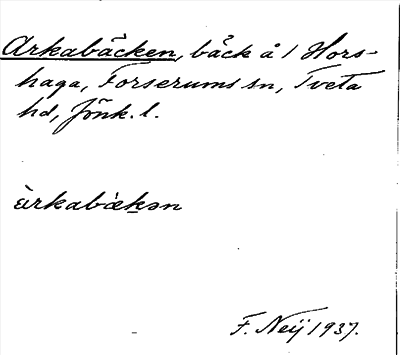 Arkabäcken, bäck å 1 Hors-
haga, Forserums sn, Tveta
hd, Jönk. l.
àrkabæ̀kən
F. Neij 1937.